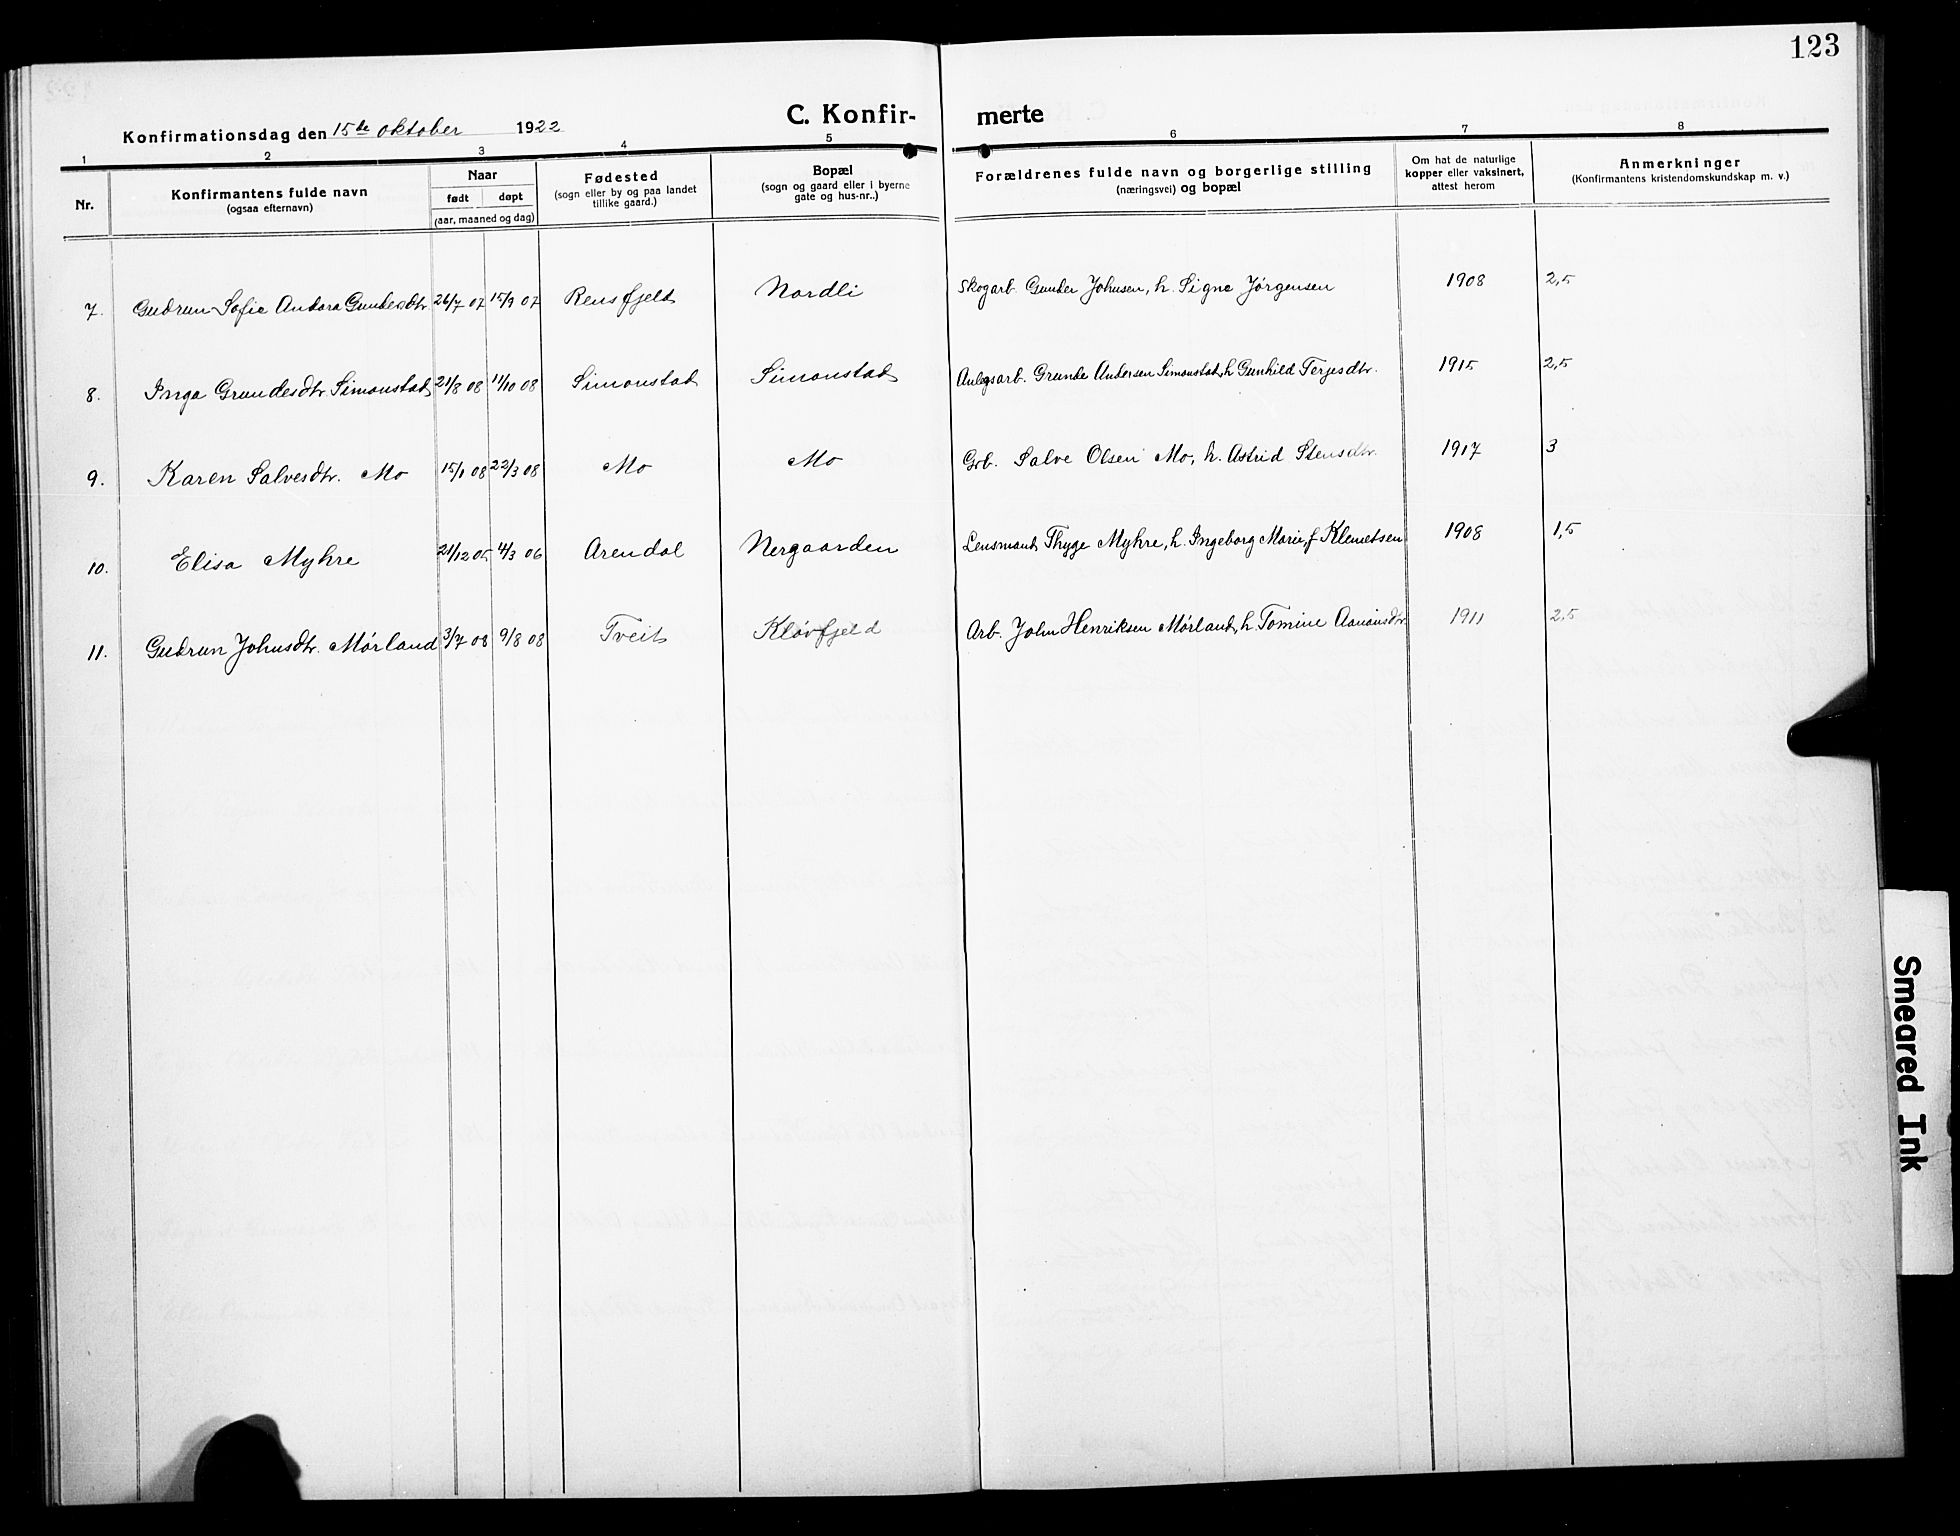 123
C. Konfirmerte
Konfirmationsdag den 15de oktober 1922
1 2 3 4 5 6 7 8
Nr.
Konfirmantens fulde navn
(ogsaa efternavn)
Naar
født døpt
(aar, maaned og dag)
Fødested
(sogn eller by og paa landet
tillike gaard.)
Bopæl
(sogn og gaard eller i byerne
gate og hus-nr..)
Forældrenes fulde navn og borgerlige stilling
(næringsvei) og bopæl
Om hat de naturlige
kopper eller vaksinert,
attest herom
Anmerkninger
(Konfirmantens kristendomskundskap m. v.)
7. Gudrun Sofie Andora Gundersdtr 26/7 07 15/9 07 Rensfjeld Nordli Skogarb. Gunder Johnsen, h. Signe Jørgensen 1908 2,5
8. Inga Grundesdtr. Simonstad 21/8 08 11/10 08 Simonstad Simonstad Anlegsarb. Grunde Andersen Simonstad, h Gunhild Terjesdtr. 1915 2,5
9. Karen Salvesdtr. Mo 15/1 08 22/3 08 Mo Mo Grb. Salve Olsen Mo, h. Astrid Stensdtr. 1917 3
10. Elisa Myhre 21/12 05 4/3 06 Arendal Nergaarden Lensmand Thyge Myhre, h. Ingeborg Marie, f Klemetsen 1908 1,5
11. Gudrun Johnsdtr. Mørland 3/7 08 9/8 08 Tveit Kløvfjeld Arb. John Henriksen Mørland, h. Tomine Aanonsdtr. 1911 2,5
Smeared Ink